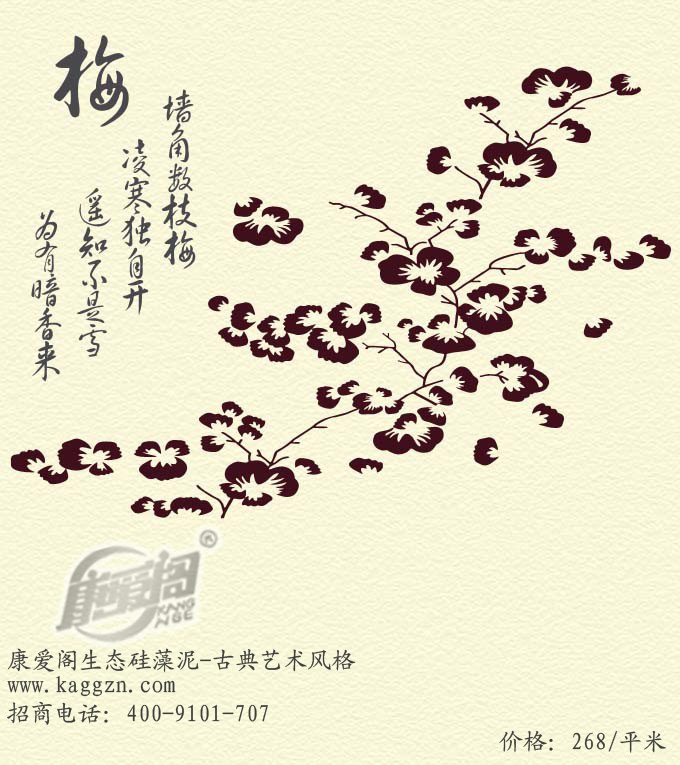 梅
墙角数枝梅
凌寒独自开
遥知不是雪
为有暗香来
康爱阁
KANG
NGE
®
康爱阁生态硅藻泥-古典艺术风格
www.kaggzn.com
招商电话：400-9101-707
价格：268/平米